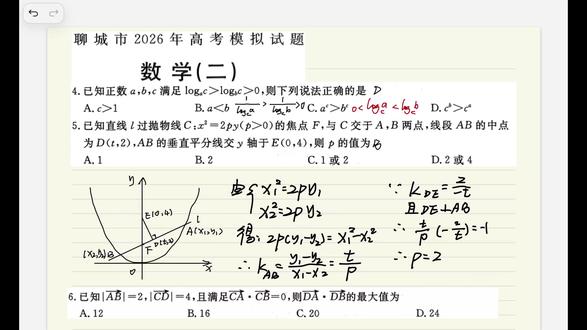 聊城市2026年高考模拟试题
数学(二)
4.已知正数a,b,c满足logₐc>log_bc>0,则下列说法正确的是 D
A.c>1 B.a<b 1/log_c a > 1/log_c b >0 C.aᶜ>bᶜ 0<log_c a<log_c b D.cᵇ>cᵃ
5.已知直线l过抛物线C:x²=2py(p>0)的焦点F,与C交于A,B两点,线段AB的中点
为D(t,2),AB的垂直平分线交y轴于E(0,4),则p的值为 B
A.1 B.2 C.1或2 D.2或4
y
E(0,4)
l
A(x₁,y₁)
D(t,2)
F
(x₂,y₂)B
0
x
由{x₁²=2py₁
x₂²=2py₂
得:2p(y₁-y₂)=x₁²-x₂²
∴k_AB=(y₁-y₂)/(x₁-x₂)=t/p
∵k_DE=2/-t
且DE⊥AB
∴t/p·(-2/t)=-1
∴p=2
6.已知|AB|=2,|CD|=4,且满足CA·CB=0,则DA·DB的最大值为
A.12 B.16 C.20 D.24